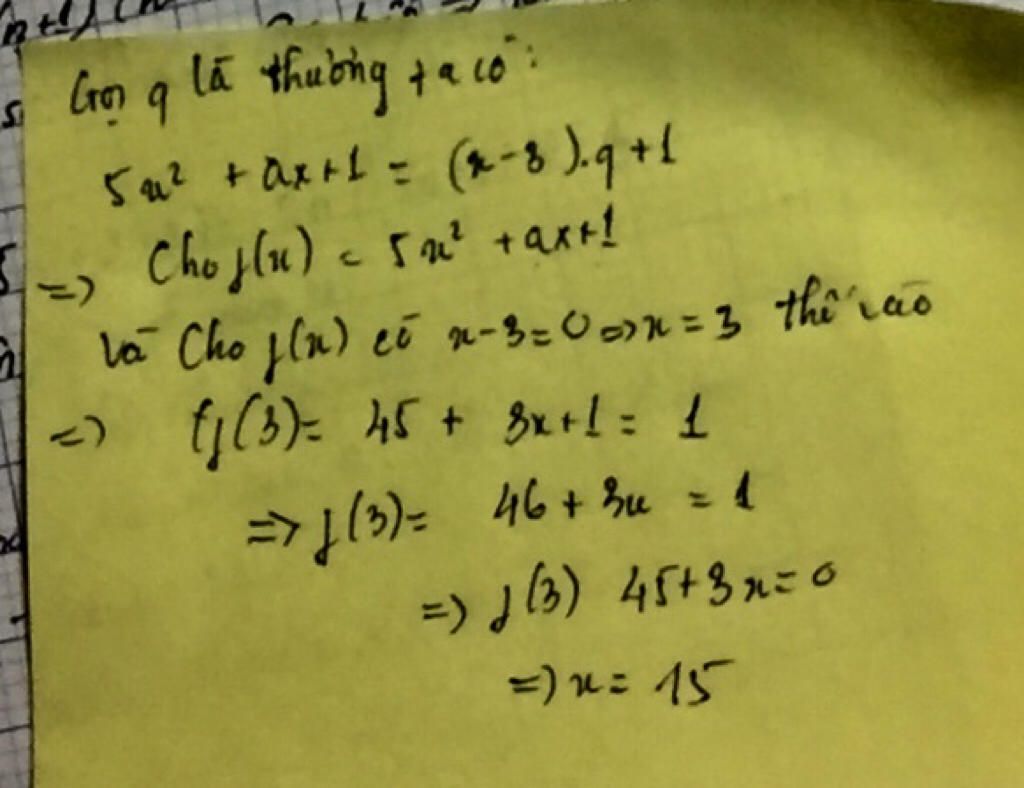 Gọi q là thương ta có:
5x² + ax+1 = (x-3).q+1
=> Cho f(x) = 5x² +ax+1
Và Cho f(x) có x-3=0=>x=3 thế vào
=> f(3)= 45 + 3x+1= 1
=> f(3)= 46 + 3x = 1
=> f(3) 45+3x=0
=> x= 15